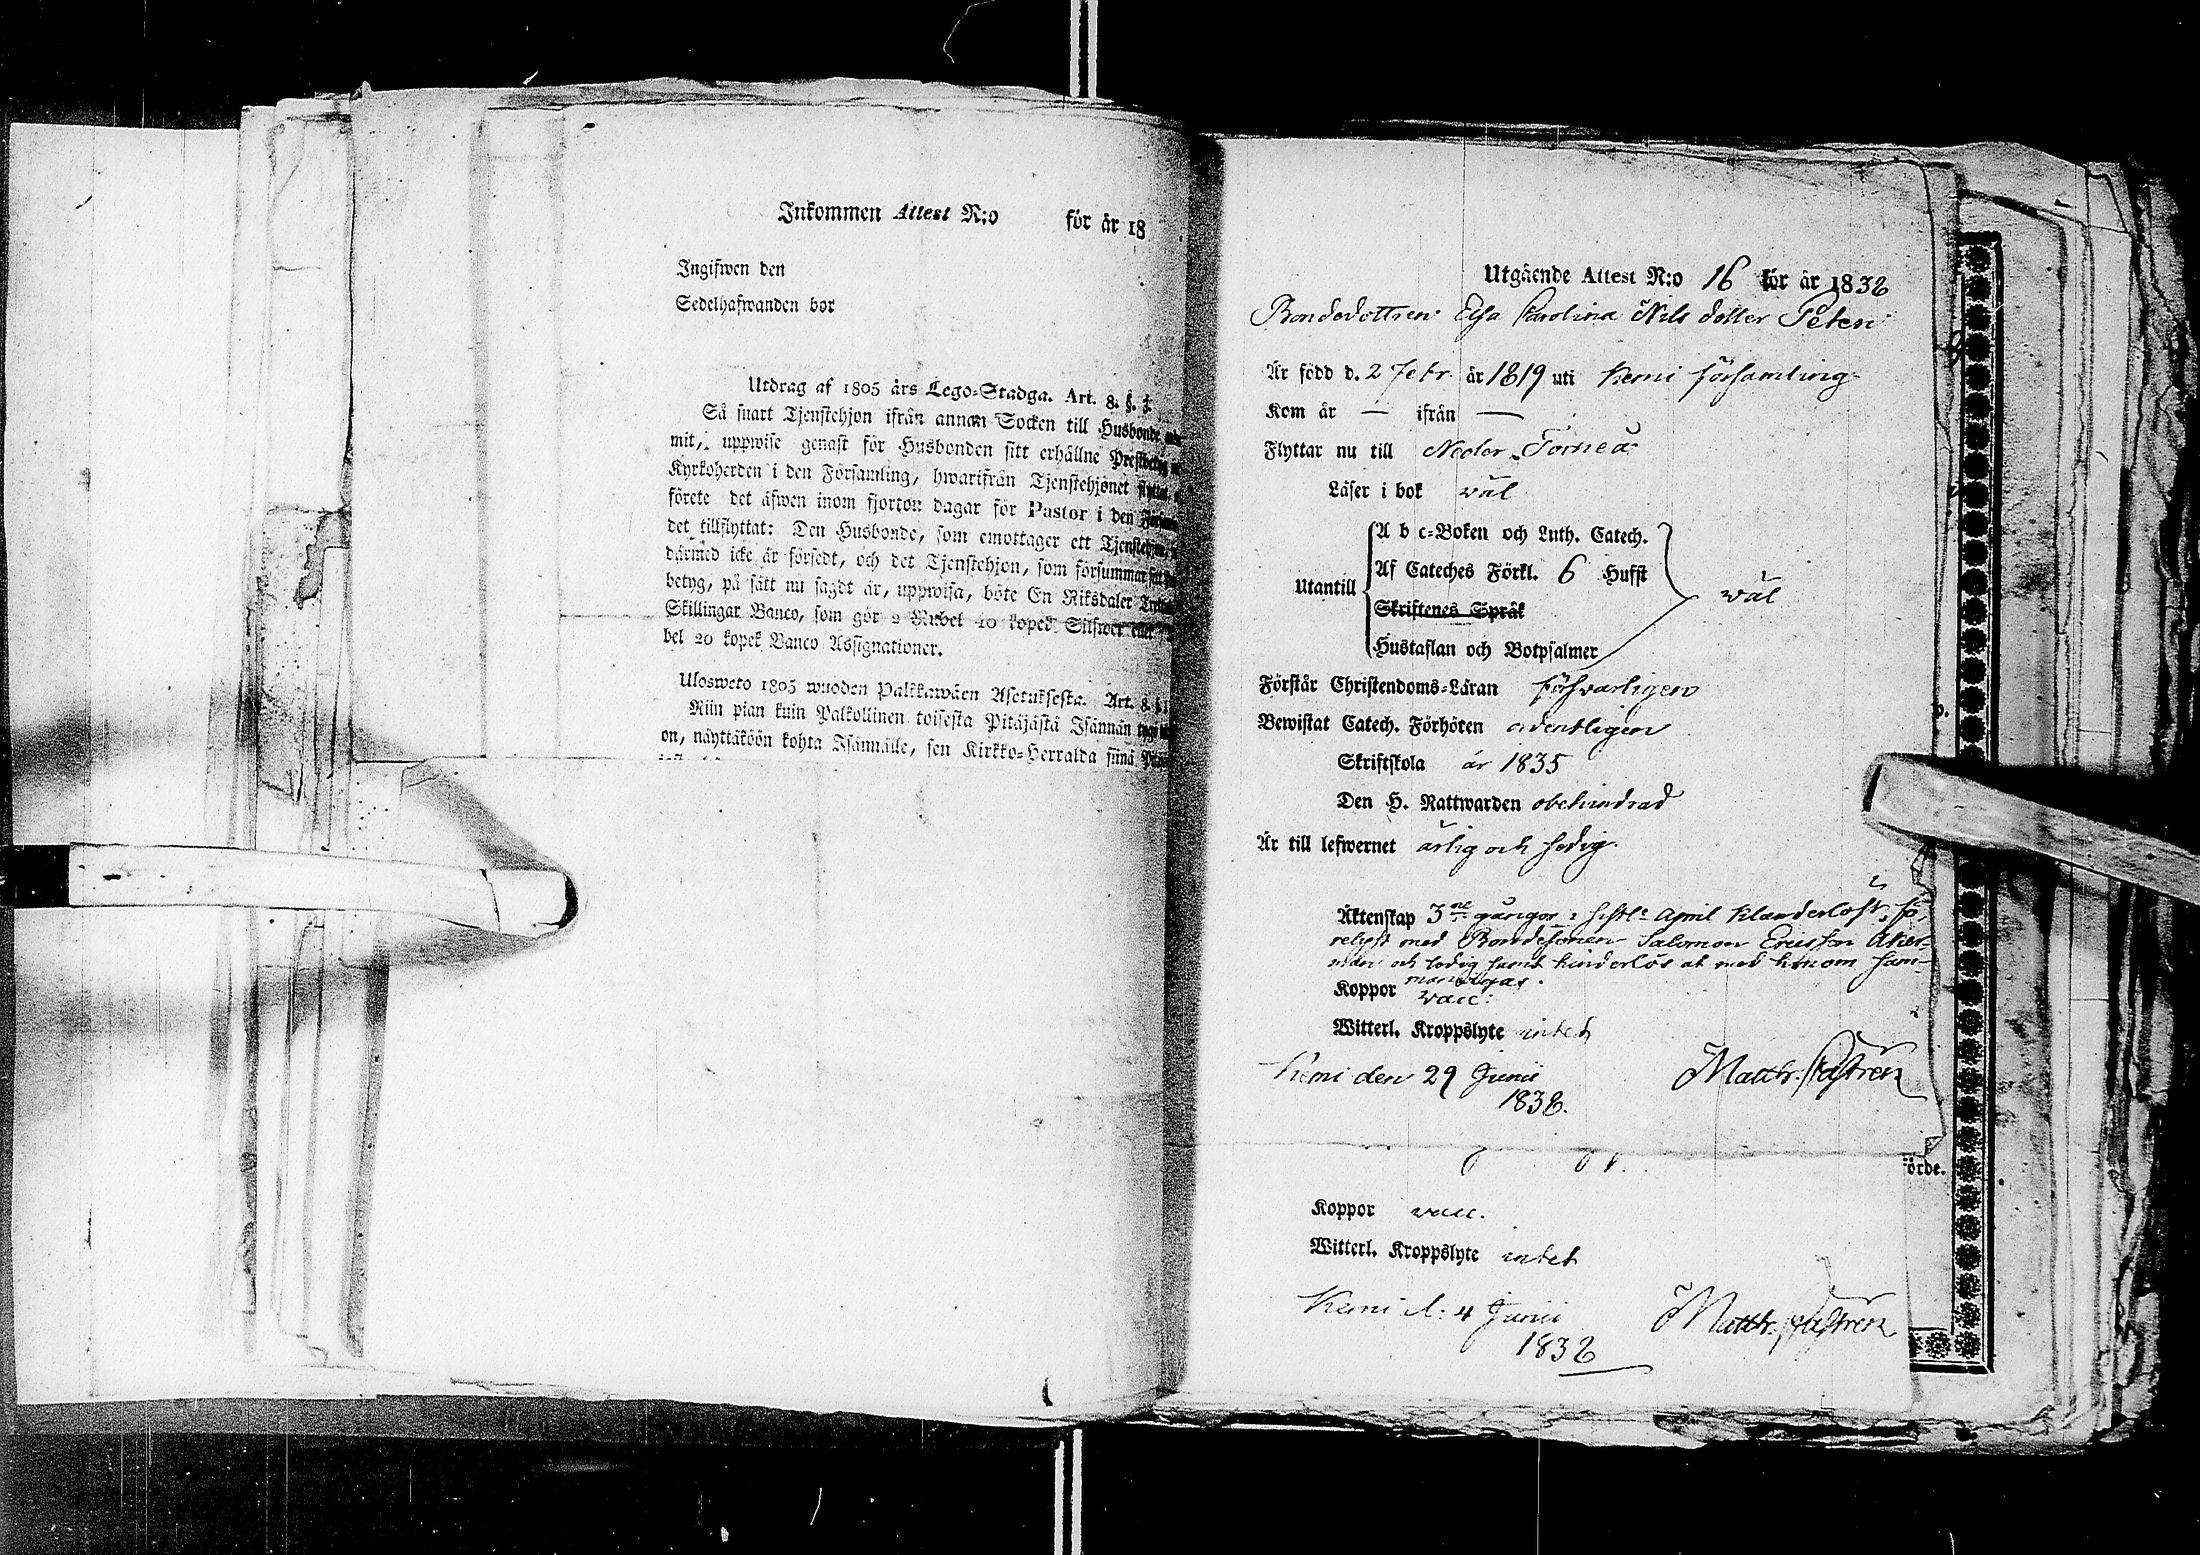 Inkommen Attest N:o för år 18
Ingifwen den
Sedelhafwanden bör
Utdrag af 1805 års Lego-Stadga. Art. 8. §. 3.
Så snart Tjenstehjon ifrån annan Socken till Husbonde
mit, uppwise genast för Husbonden sitt erhållne
Kyrkoherden i den Församling, hwarifrån Tjenstehjonet
förete det äfwen inom fjorton dagar för Pastor i den
det tillflyttat: Den Husbonde, som emottager ett
därmed icke är försedt, och det Tjenstehjon, som försummar
betyg, på sätt nu sagdt är, uppwisa, böte En Riksdaler
Skillingar Banco, som gör 2 Rubel 40 kopek Silfwer eller
bel 20 kopek Banco Assignationer.
Ulosweto 1805 wuoden Palkkawäen Asetuksesta. Art. 8. §
Niin pian kuin Palkollinen toisesta Pitäjästä Isännän
on, näyttäköön kohta Isännälle, sen Kirkko-Herralda siinä
Utgående Attest N:o 16 för år 1838
Bondedottren Elsa Carolina Nils dotter Peteri
Är född d. 2 Febr. år 1819 uti Kemi församling
Kom år — ifrån —
Flyttar nu till Neder Torneå
Läser i bok väl
A b c-Boken och Luth. Catech.
Af Cateches Förkl. 6 Hufst
Utantill väl
Skriftenes Språk
Hustaflan och Botpsalmer
Förstår Christendoms-Läran försvarligen
Bewistat Catech. Förhören ordentligen
Skriftskola år 1835
Den H. Nattwarden obehindrad
Är till lefwernet ärlig och sedig.
Äktenskap 3ne gångor i sistl: April Klanderlöst
relyst med Bondesonen Salomon Ericsson Åker-
man och ledig samt hinderlös at med honom sam-
manvigas.
Koppor vacc:
Witterl. Kroppslyte intet
Kemi den 29 Junii Matth. Castrén
1838.
örde.
Koppor vacc.
Witterl. Kroppslyte intet
Kemi d: 4 Junii Matth. Castrén
1838